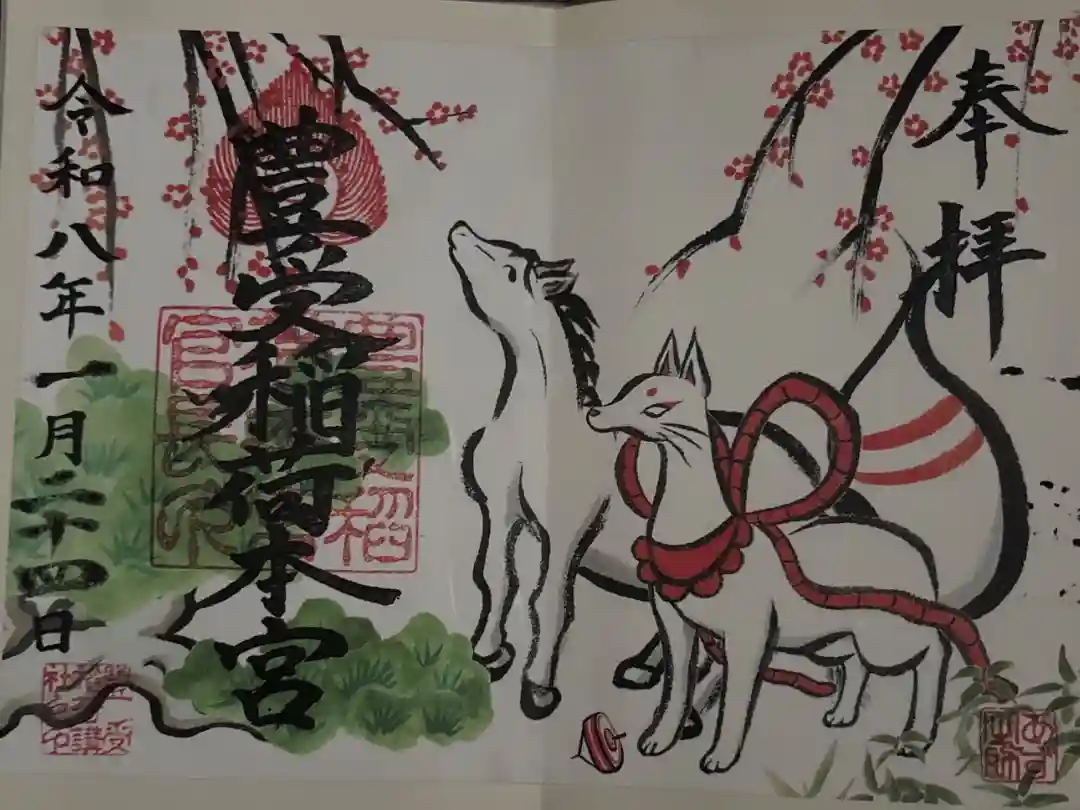 奉拝
豊受稲荷本宮
令和八年一月二十四日